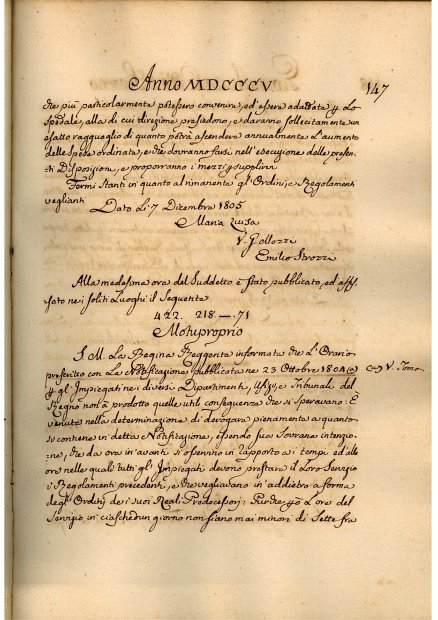 Anno MDCCCV
147
che più particolarmente potessero convenire, ed essere adattate p Lo
spedale, alla di cui direzione presiedono, e daranno sollecitamente un
esatto ragguaglio di quanto potrà ascendere annualmente L'aumento
delle spese ordinate, e che dovranno farsi nell'esecuzione delle presen-
ti Disposizioni, e proporranno i mezzi p supplirvi
Fermi Stanti in quanto al rimanente gl'Ordini, e Regolamenti
veglianti
Dato Li 7 Dicembre 1805
Maria Luisa
V. J.
Emilio Strozzi
Alla medesima ora del Suddetto è stato pubblicato, ed affis-
sato nei soliti Luoghi il Seguente
422. 218—.71
Motuproprio
S. M. La Regina Reggente informata che L'Orario
prescritto con La Notificazione pubblicata ne 23 Ottobre 1804 (a)
(a) V. Tomo
p gl'Impiegati nei diversi Dipartimenti, Ufizj, e Tribunali del
Regno non à prodotto quelle utili conseguenze che si speravano: È
venuta nella determinazione di derogare pienamente a quanto
si contiene in detta Notificazione, essendo sua Sovrana intenzio-
ne, che da ora in avanti si osservino in rapporto ai tempi ed alle
ore nelle quali tutti gl'Impiegati devono prestare il Loro Servizio
i Regolamenti precedenti, e che vegliavano in addietro a forma
degl'Ordini de i suoi Reali Predecessori: Purchè però L'ore del
Servizio in ciaschedun giorno non siano mai minori di Sette fra